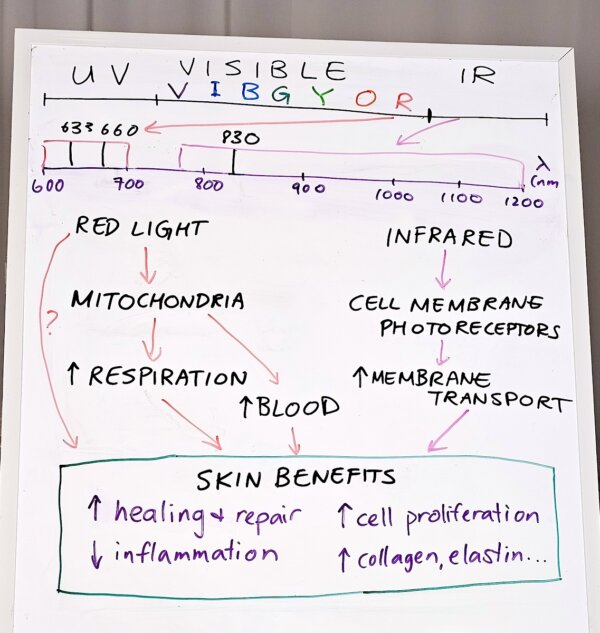 UV VISIBLE IR
V I B G Y O R
633 660 830
λ
(nm
600 700 800 900 1000 1100 1200
RED LIGHT INFRARED
? MITOCHONDRIA CELL MEMBRANE
PHOTORECEPTORS
↑ RESPIRATION ↑ MEMBRANE
↑ BLOOD TRANSPORT
SKIN BENEFITS
↑ healing + repair ↑ cell proliferation
↓ inflammation ↑ collagen, elastin...